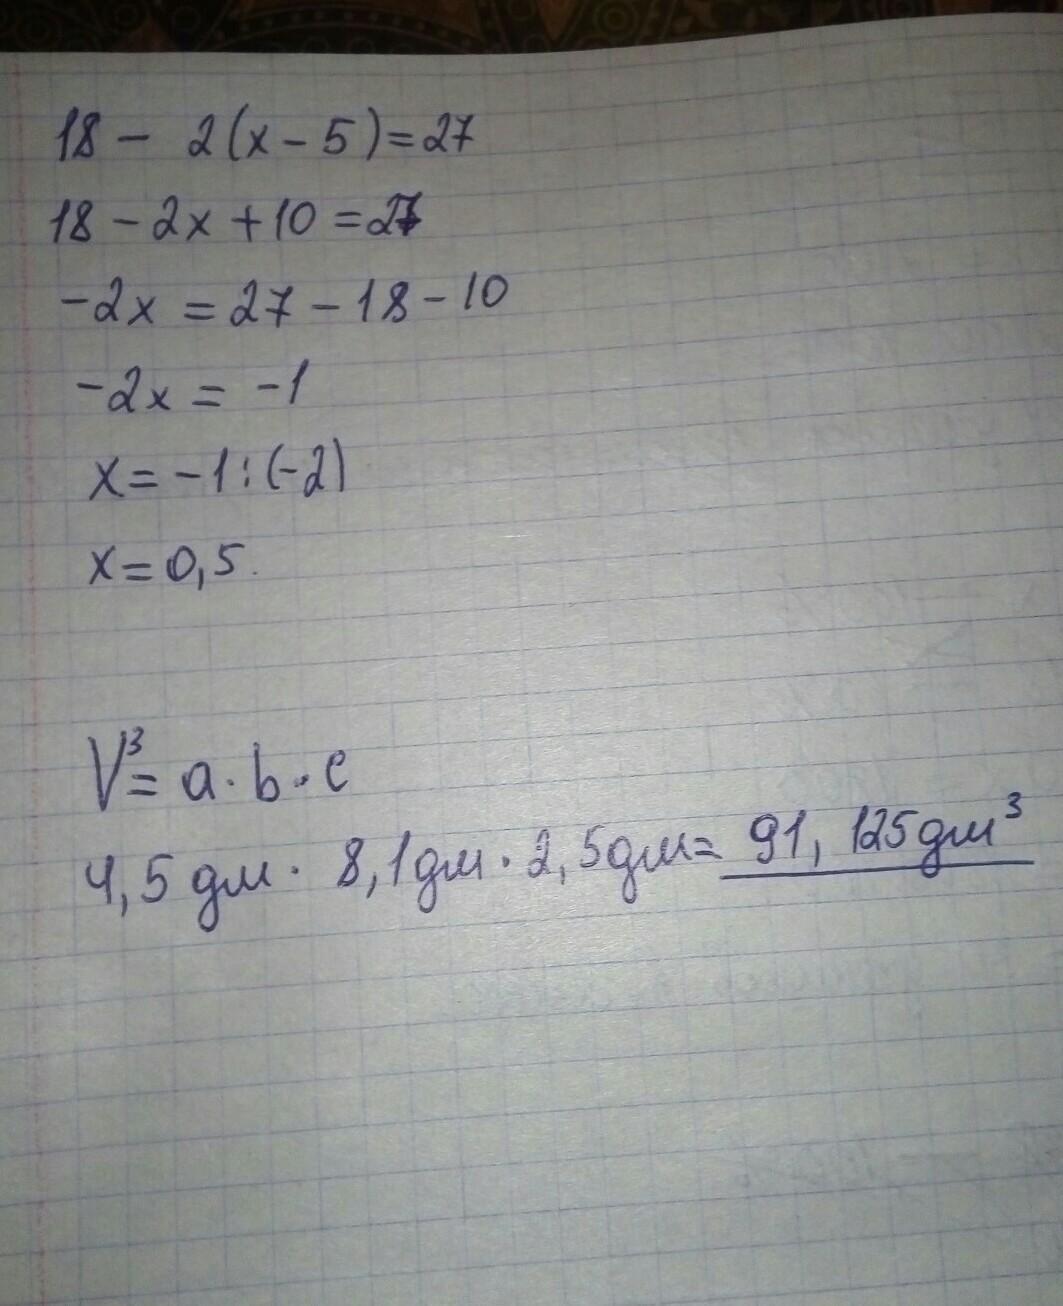 18 - 2(x - 5) = 27
18 - 2x + 10 = 27
-2x = 27 - 18 - 10
-2x = -1
x = -1 : (-2)
x = 0,5.
V³ = a · b · c
4,5 дм · 8,1 дм · 2,5 дм = 91,125 дм³